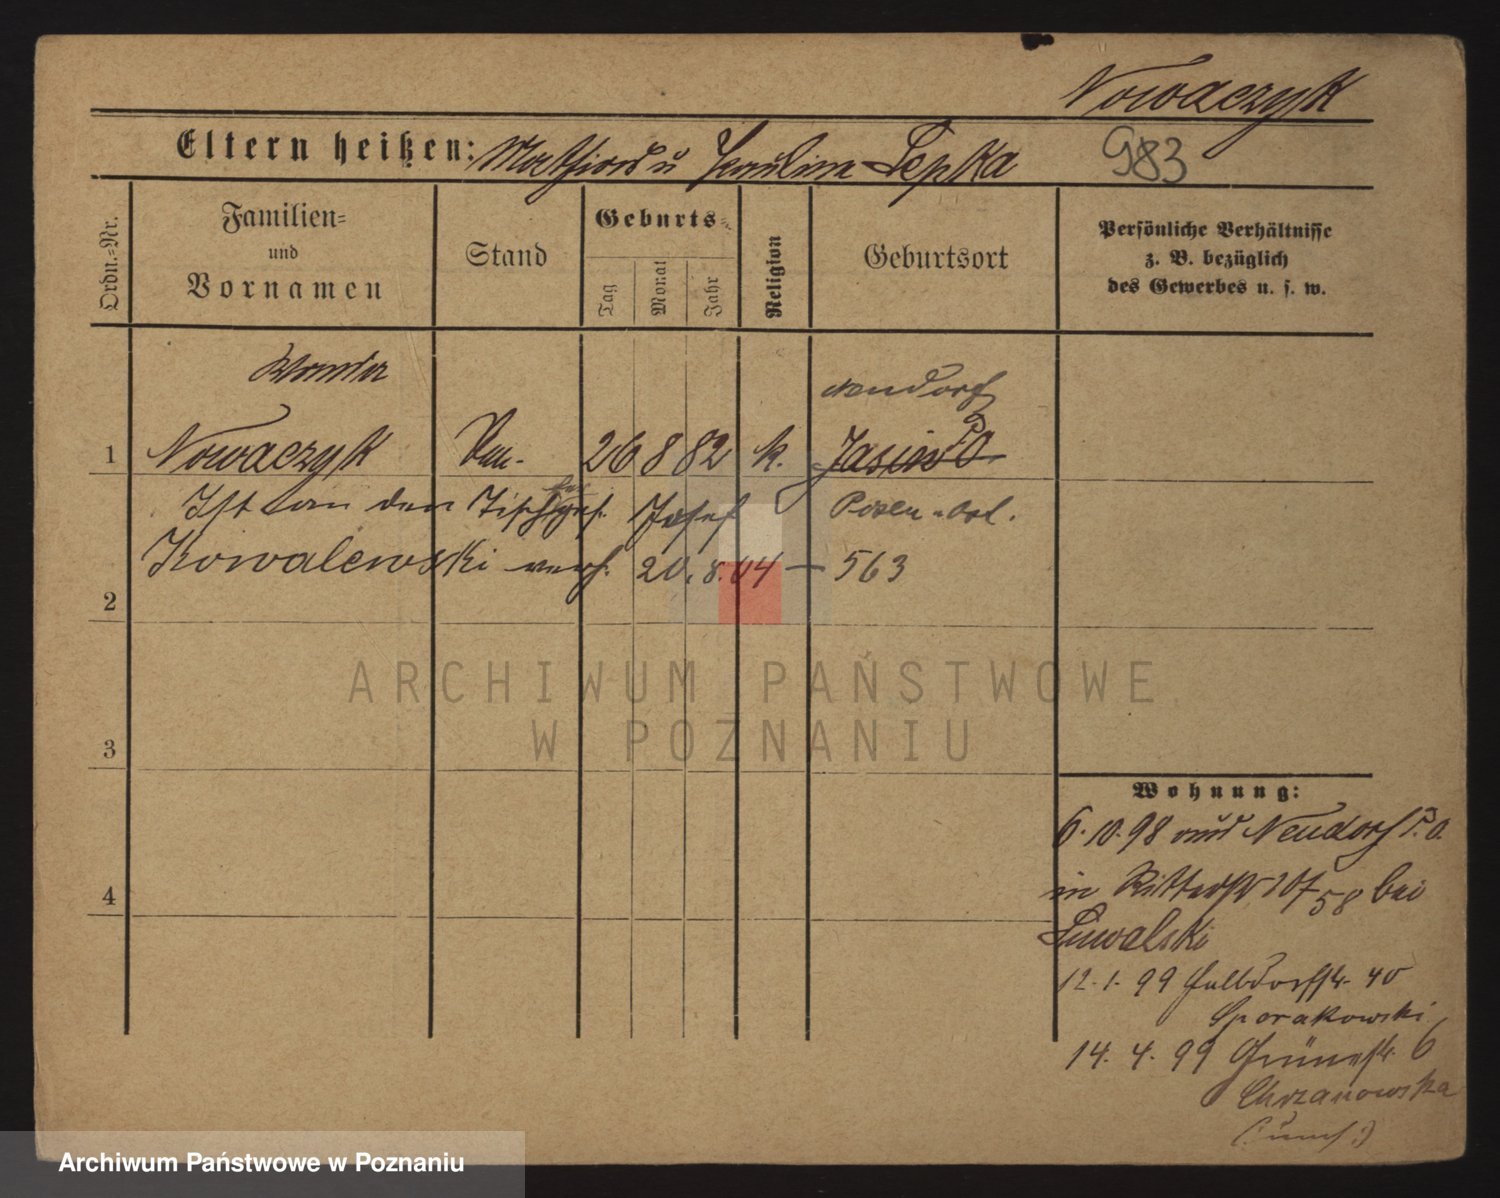 Nowaczyk
Eltern heißen: Mathias u Paulina Lepka
983
Ordn.=Nr.
Familien=
und
Vornamen
Stand
Geburts=
Tag
Monat
Jahr
Religion
Geburtsort
Persönliche Verhältnisse
z. B. bezüglich
des Gewerbes u. s. w.
Wanda
1 Nowaczyk 26 8 82 k.
Neudorf
Posen-Ost.
Ist an den Josef
Kowalewski verh. 20.8.04 — 563
2
3
4
ARCHIWUM PAŃSTWOWE
W POZNANIU
Wohnung:
6.10.98 aus Neudorf P. O.
in Ritterstr bei
12.1.99 Halbdorfstr. 40
Sporakowski
14.4.99 Grünestr. 6
Chrzanowska
Archiwum Państwowe w Poznaniu